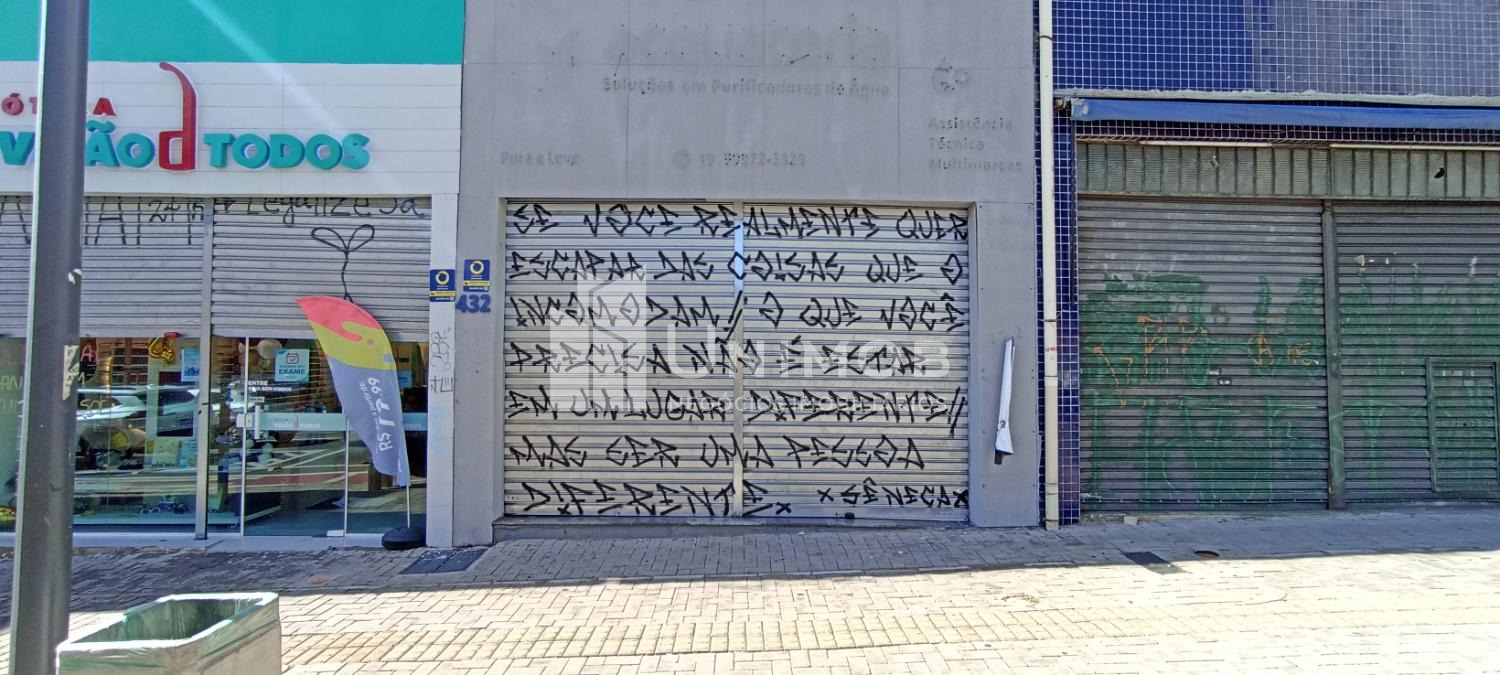 ÓTICA
VISÃO d TODOS
Soluções em Purificadores de Água
Assistência
Técnica
Multimarcas
Pura e Leve
legalize Já
432
SE VOCE REALMENTE QUER
ESCAPAR DAS COISAS QUE O
INCOMODAM, O QUE VOCÊ
PRECISA NÃO É ESTAR
EM UM LUGAR DIFERENTE//
MAS SER UMA PESSOA
DIFERENTE x xSÊNECAx
UNIMOB
EXAME
ENTRE
VISÃO d TODOS
R$